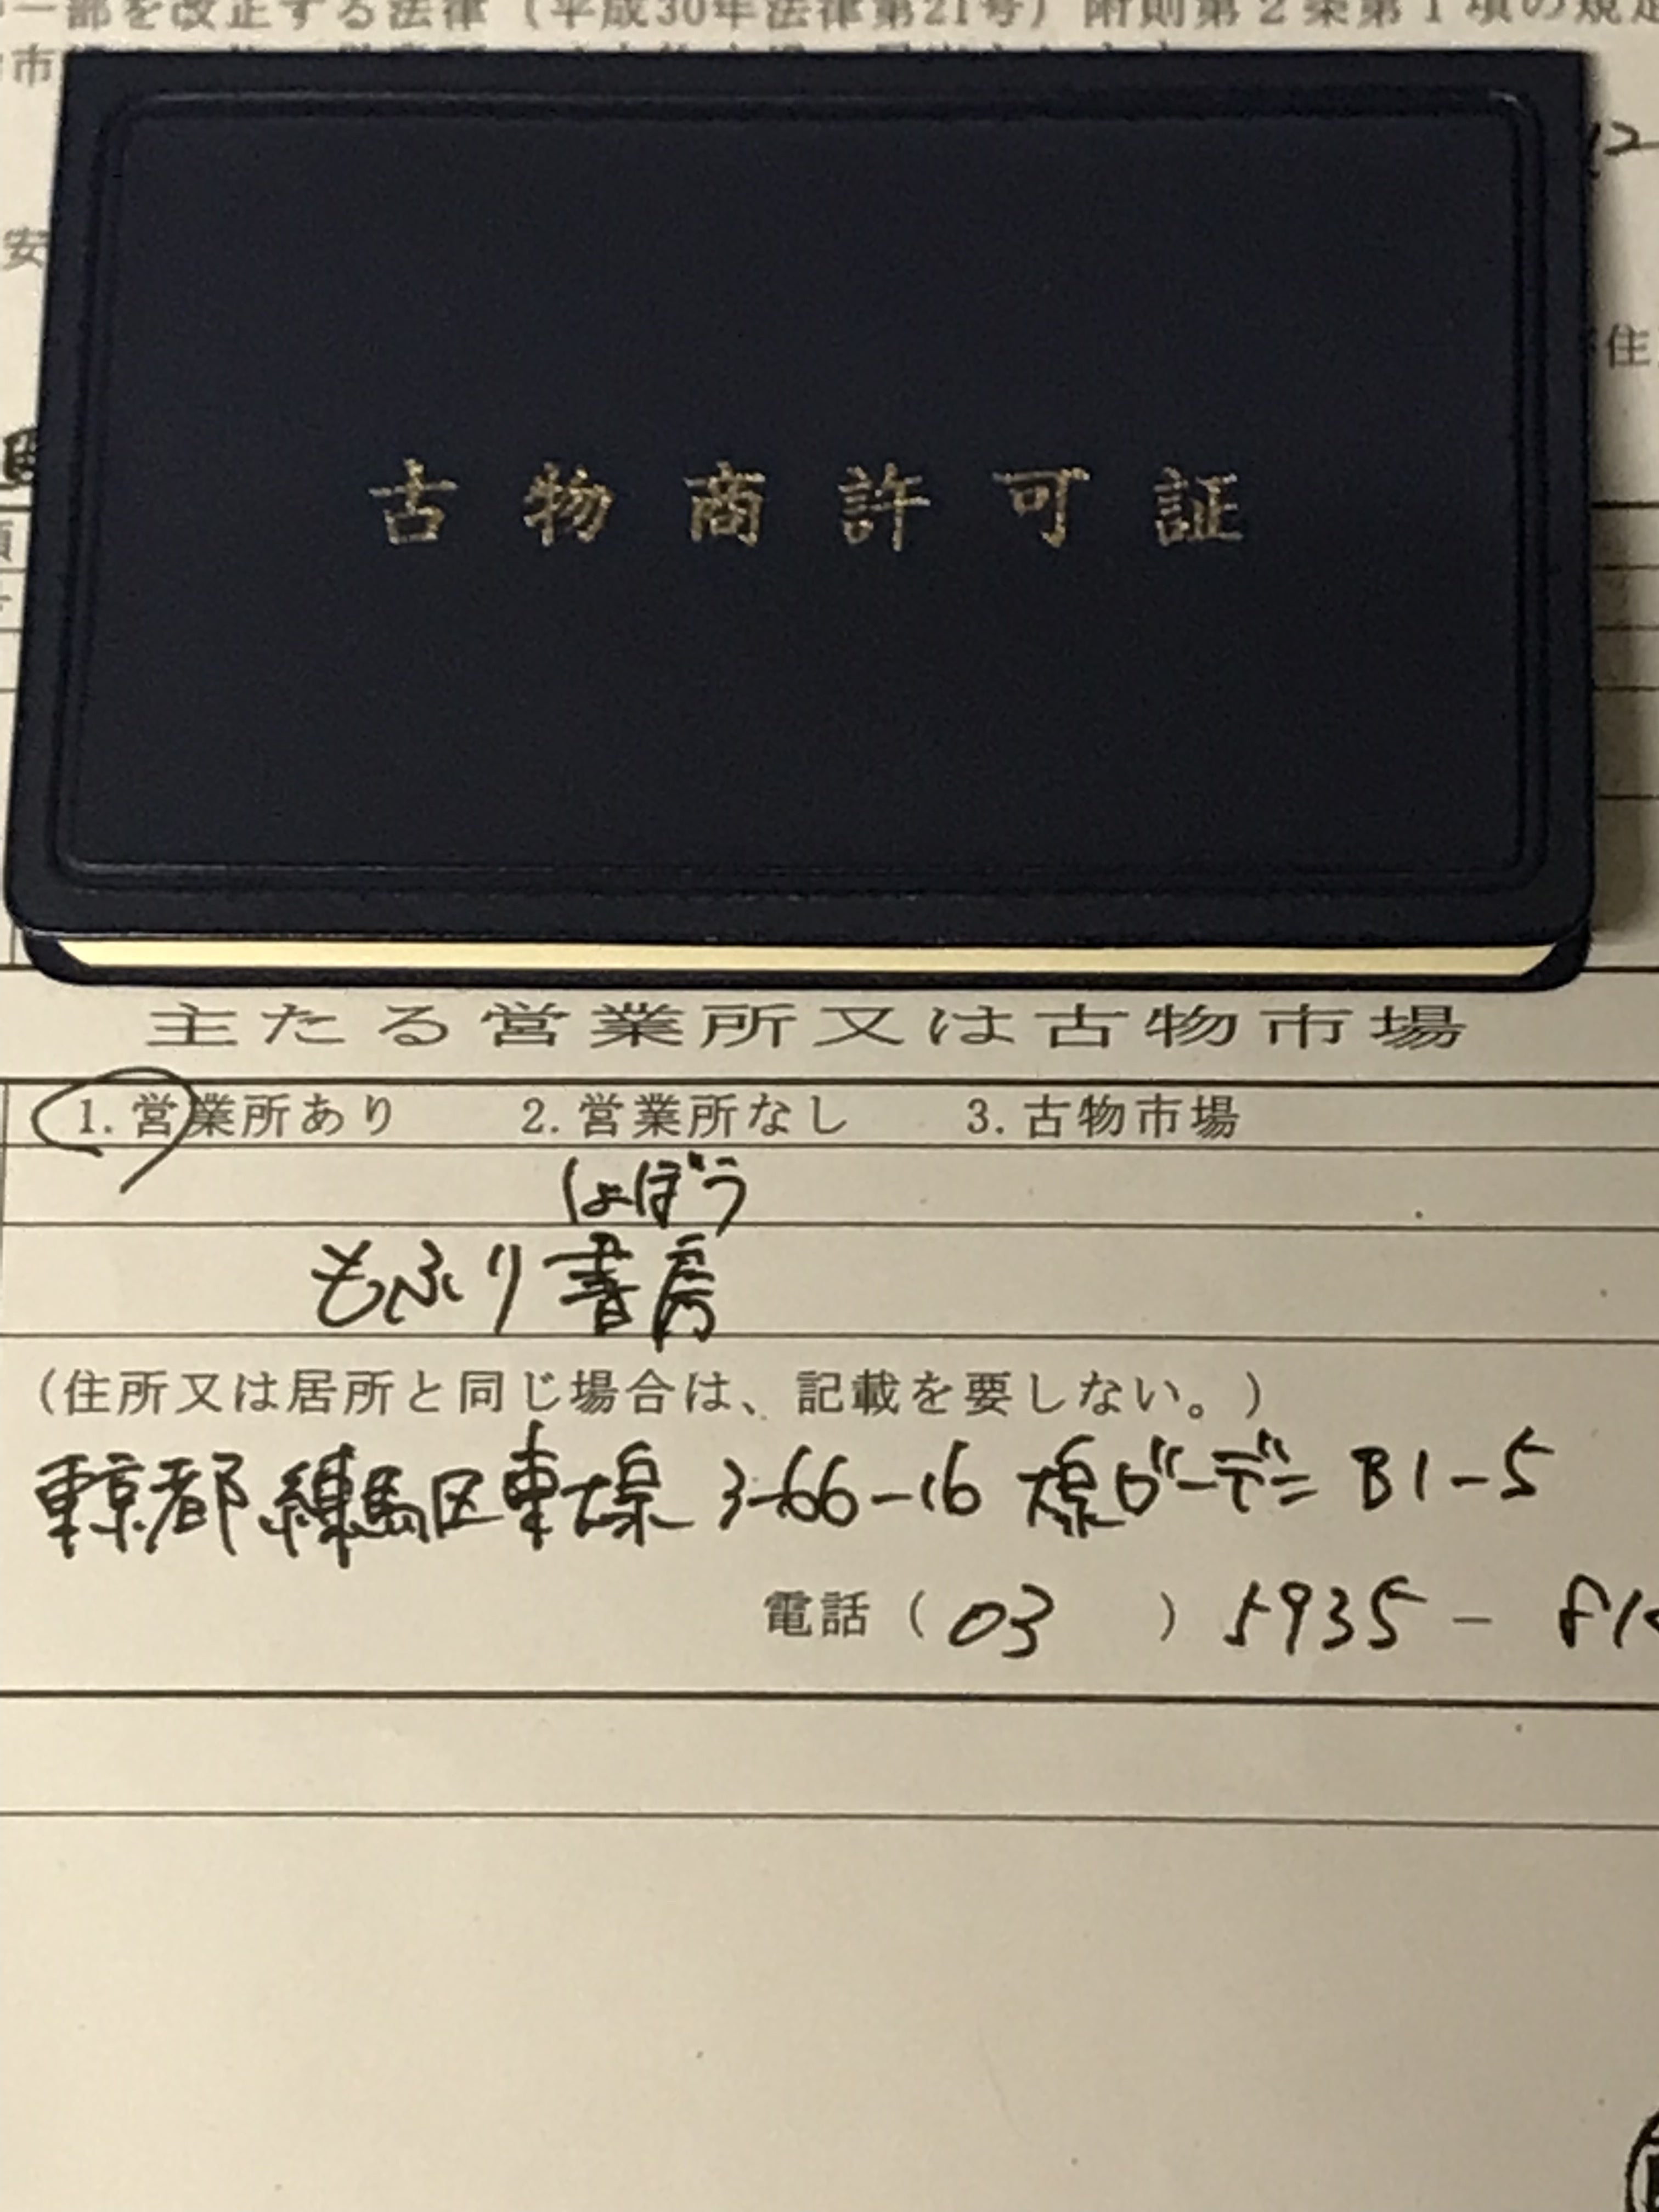 一部を改正する法律（平成30年法律第21号）附則第2条第1項の規定
市
12
安
住
古物商許可証
主たる営業所又は古物市場
1.営業所あり 2.営業所なし 3.古物市場
しょぼう
もふり書房
（住所又は居所と同じ場合は、記載を要しない。）
東京都練馬区東大泉 3-66-16 大泉ガーデン B1-5
電話（03 ）5935-81